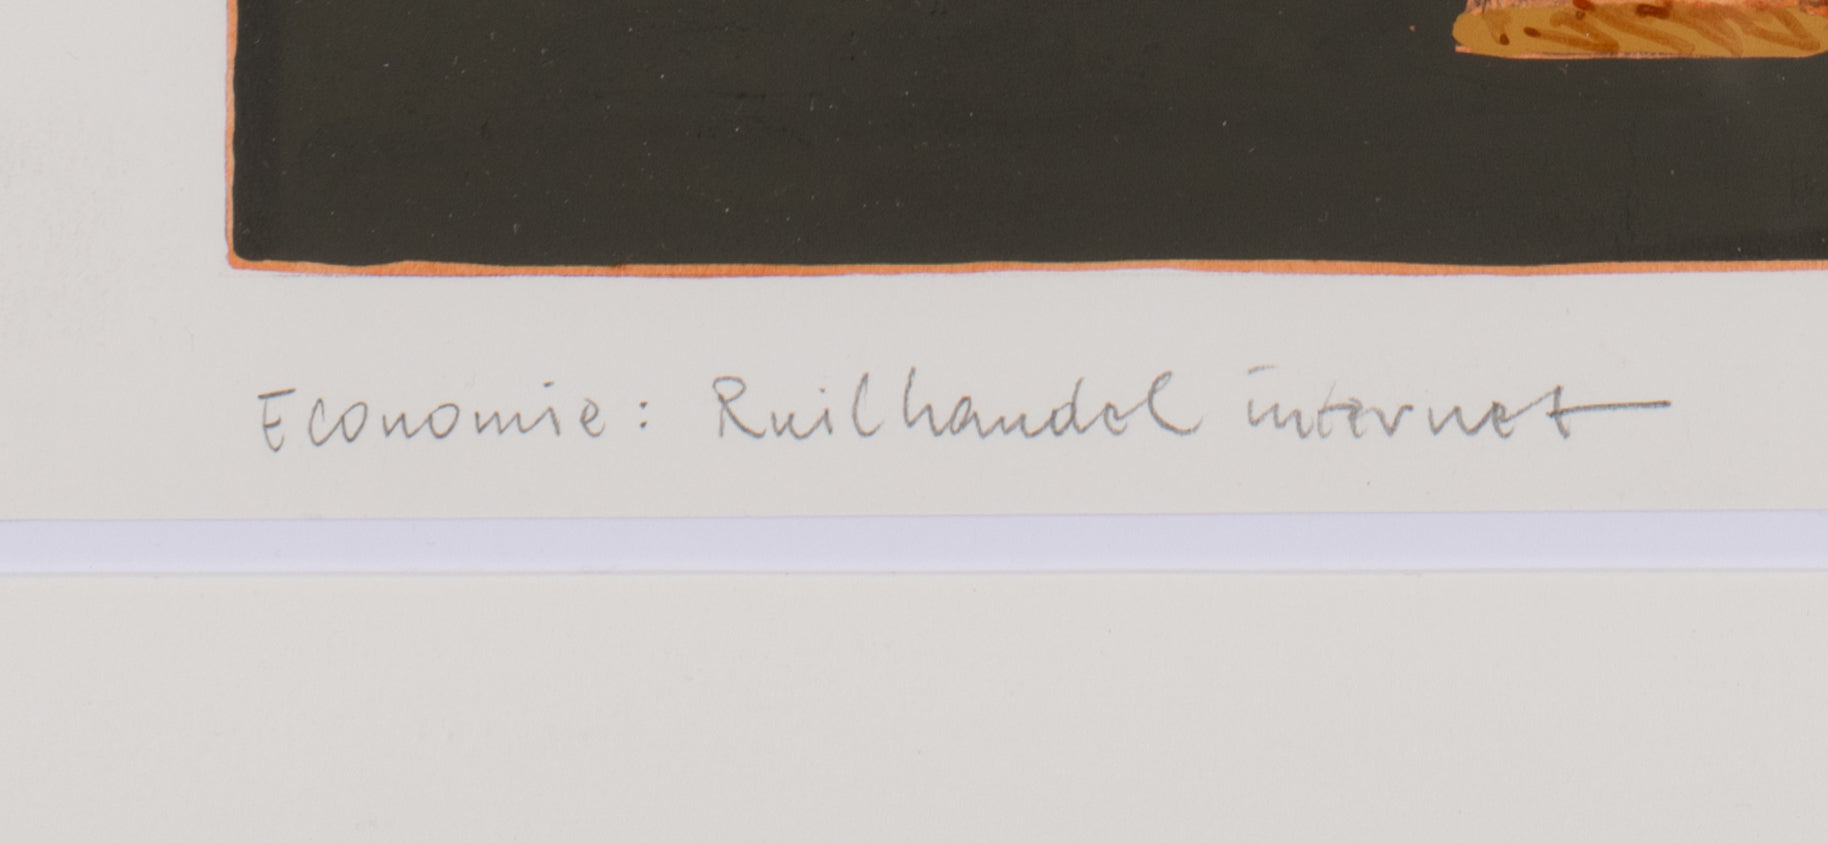 Economie: Ruilhandel internet